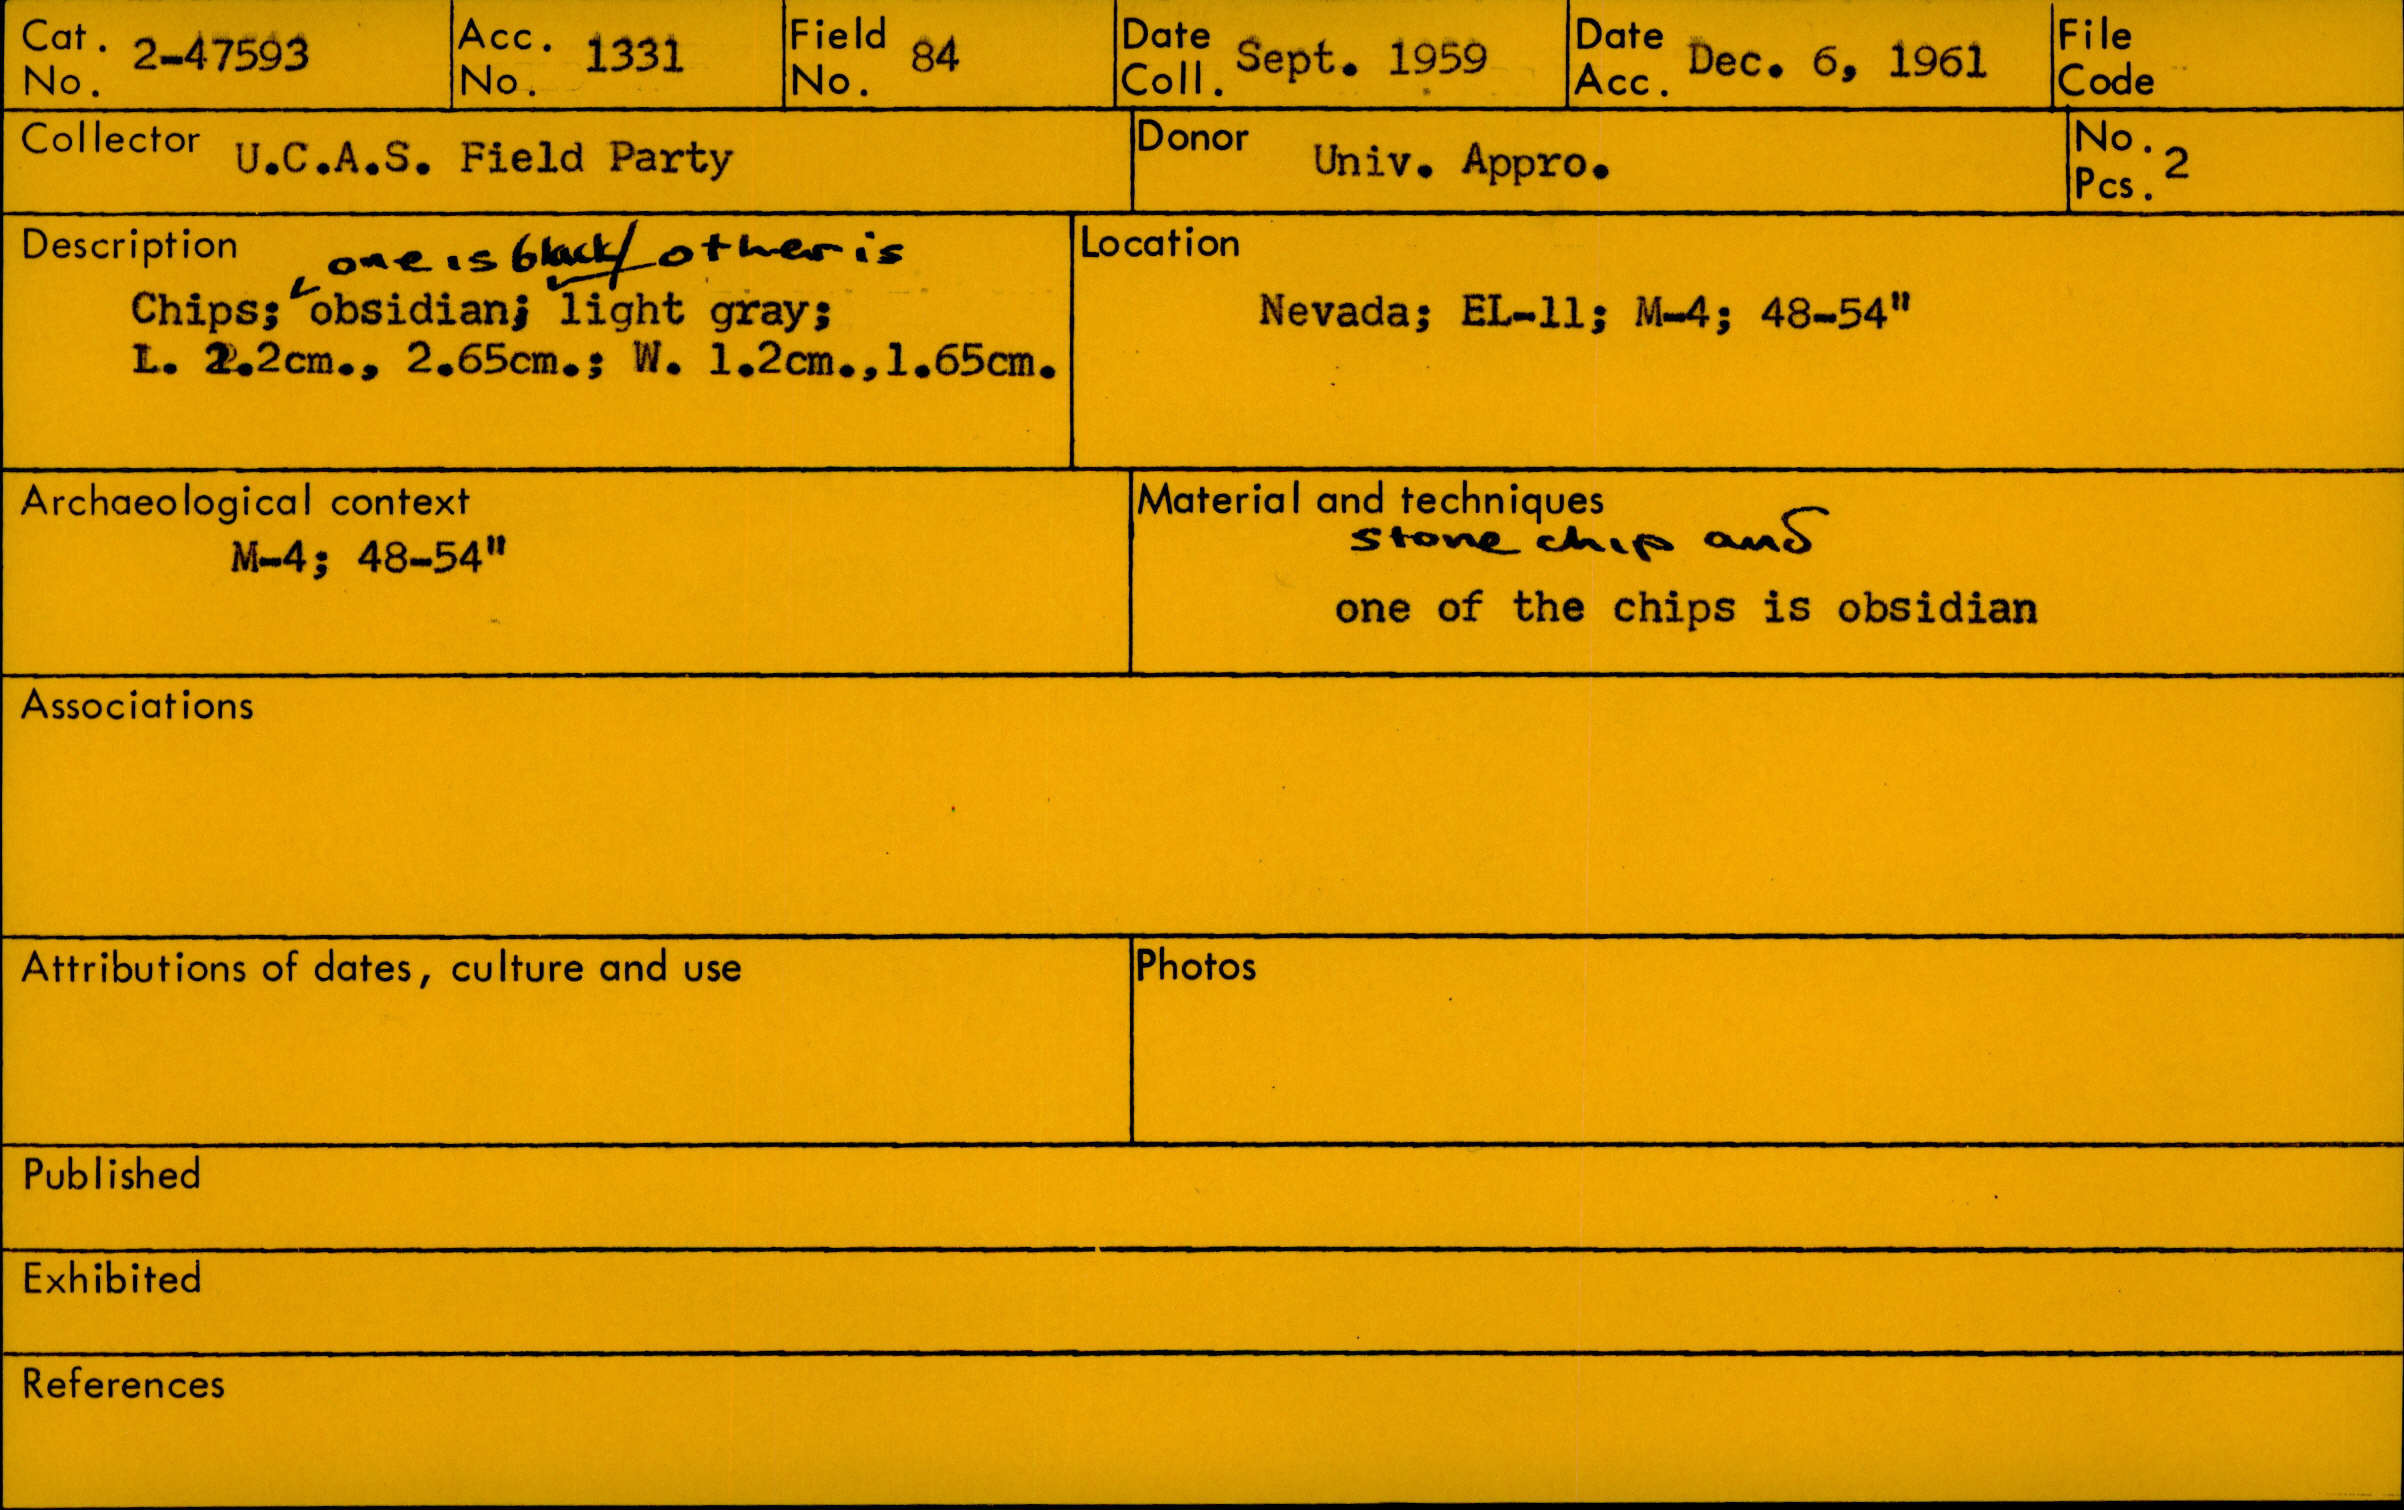 Cat. No. 2-47593
Acc. No. 1331
Field No. 84
Date Coll. Sept. 1959
Date Acc. Dec. 6, 1961
File Code
Collector U.C.A.S. Field Party
Donor Univ. Appro.
No. Pcs. 2
Description
one is black/ other is
Chips; obsidian; light gray;
L. 2.2cm., 2.65cm.; W. 1.2cm.,1.65cm.
Location
Nevada; EL-11; M-4; 48-54"
Archaeological context
M-4; 48-54"
Material and techniques
stone chip and
one of the chips is obsidian
Associations
Attributions of dates, culture and use
Photos
Published
Exhibited
References